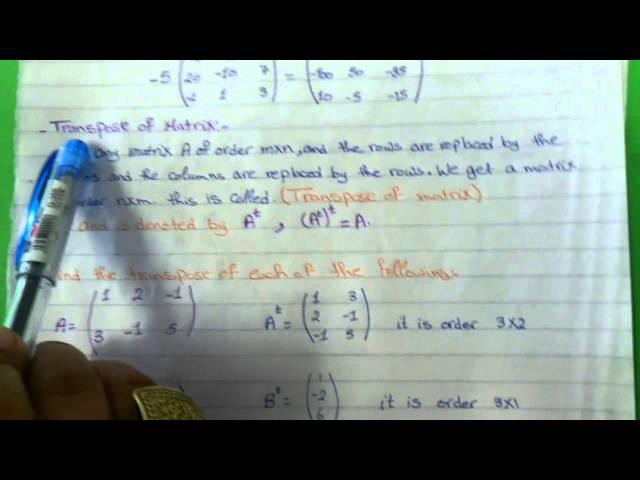 -5 (20 -10 7 = (-100 50 -35
-2 1 3) 10 -5 -15)
- Transpose of Matrix:-
any matrix A of order mxn, and the rows are replaced by the
and the columns are replaced by the rows. We get a matrix
nxm. this is called. (Transpose of matrix)
and is denoted by Aᵗ, (Aᵗ)ᵗ = A.
the transpose of each of the following:
A = (1 2 -1 Aᵗ = (1 3
3 -1 5) 2 -1
-1 5) it is order 3x2
Bᵗ = (1
-2
6) it is order 3x1